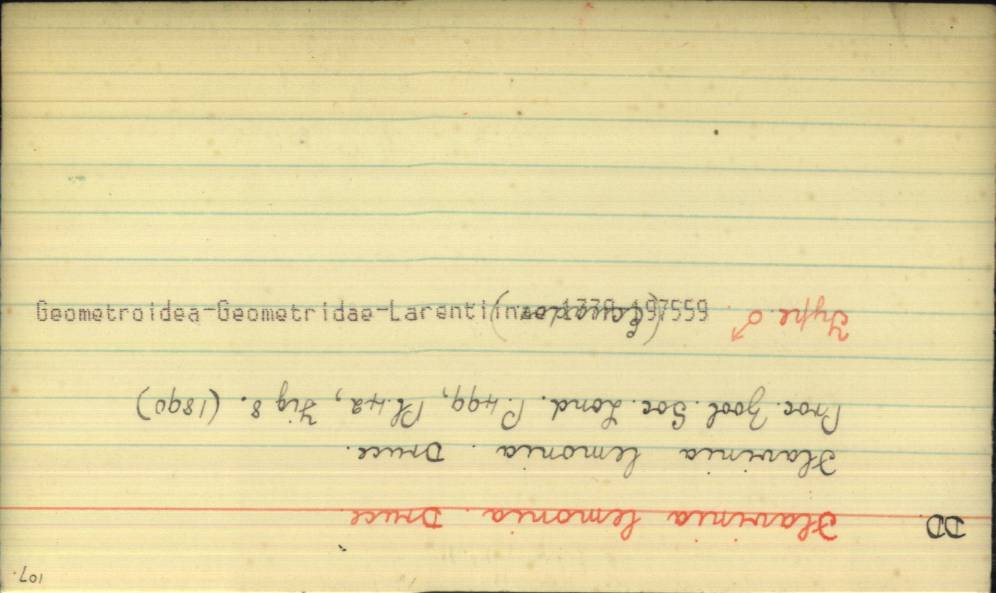 107.
DD. Flavinia lemonia. Druce.
Flavinia lemonia. Druce.
Proc. Zool. Soc. Lond. P. 499, Pl. 42, Fig 8. (1890)
Type. ♂. (Ecuador)
Geometroidea-Geometridae-Larentiinae 1779 197559